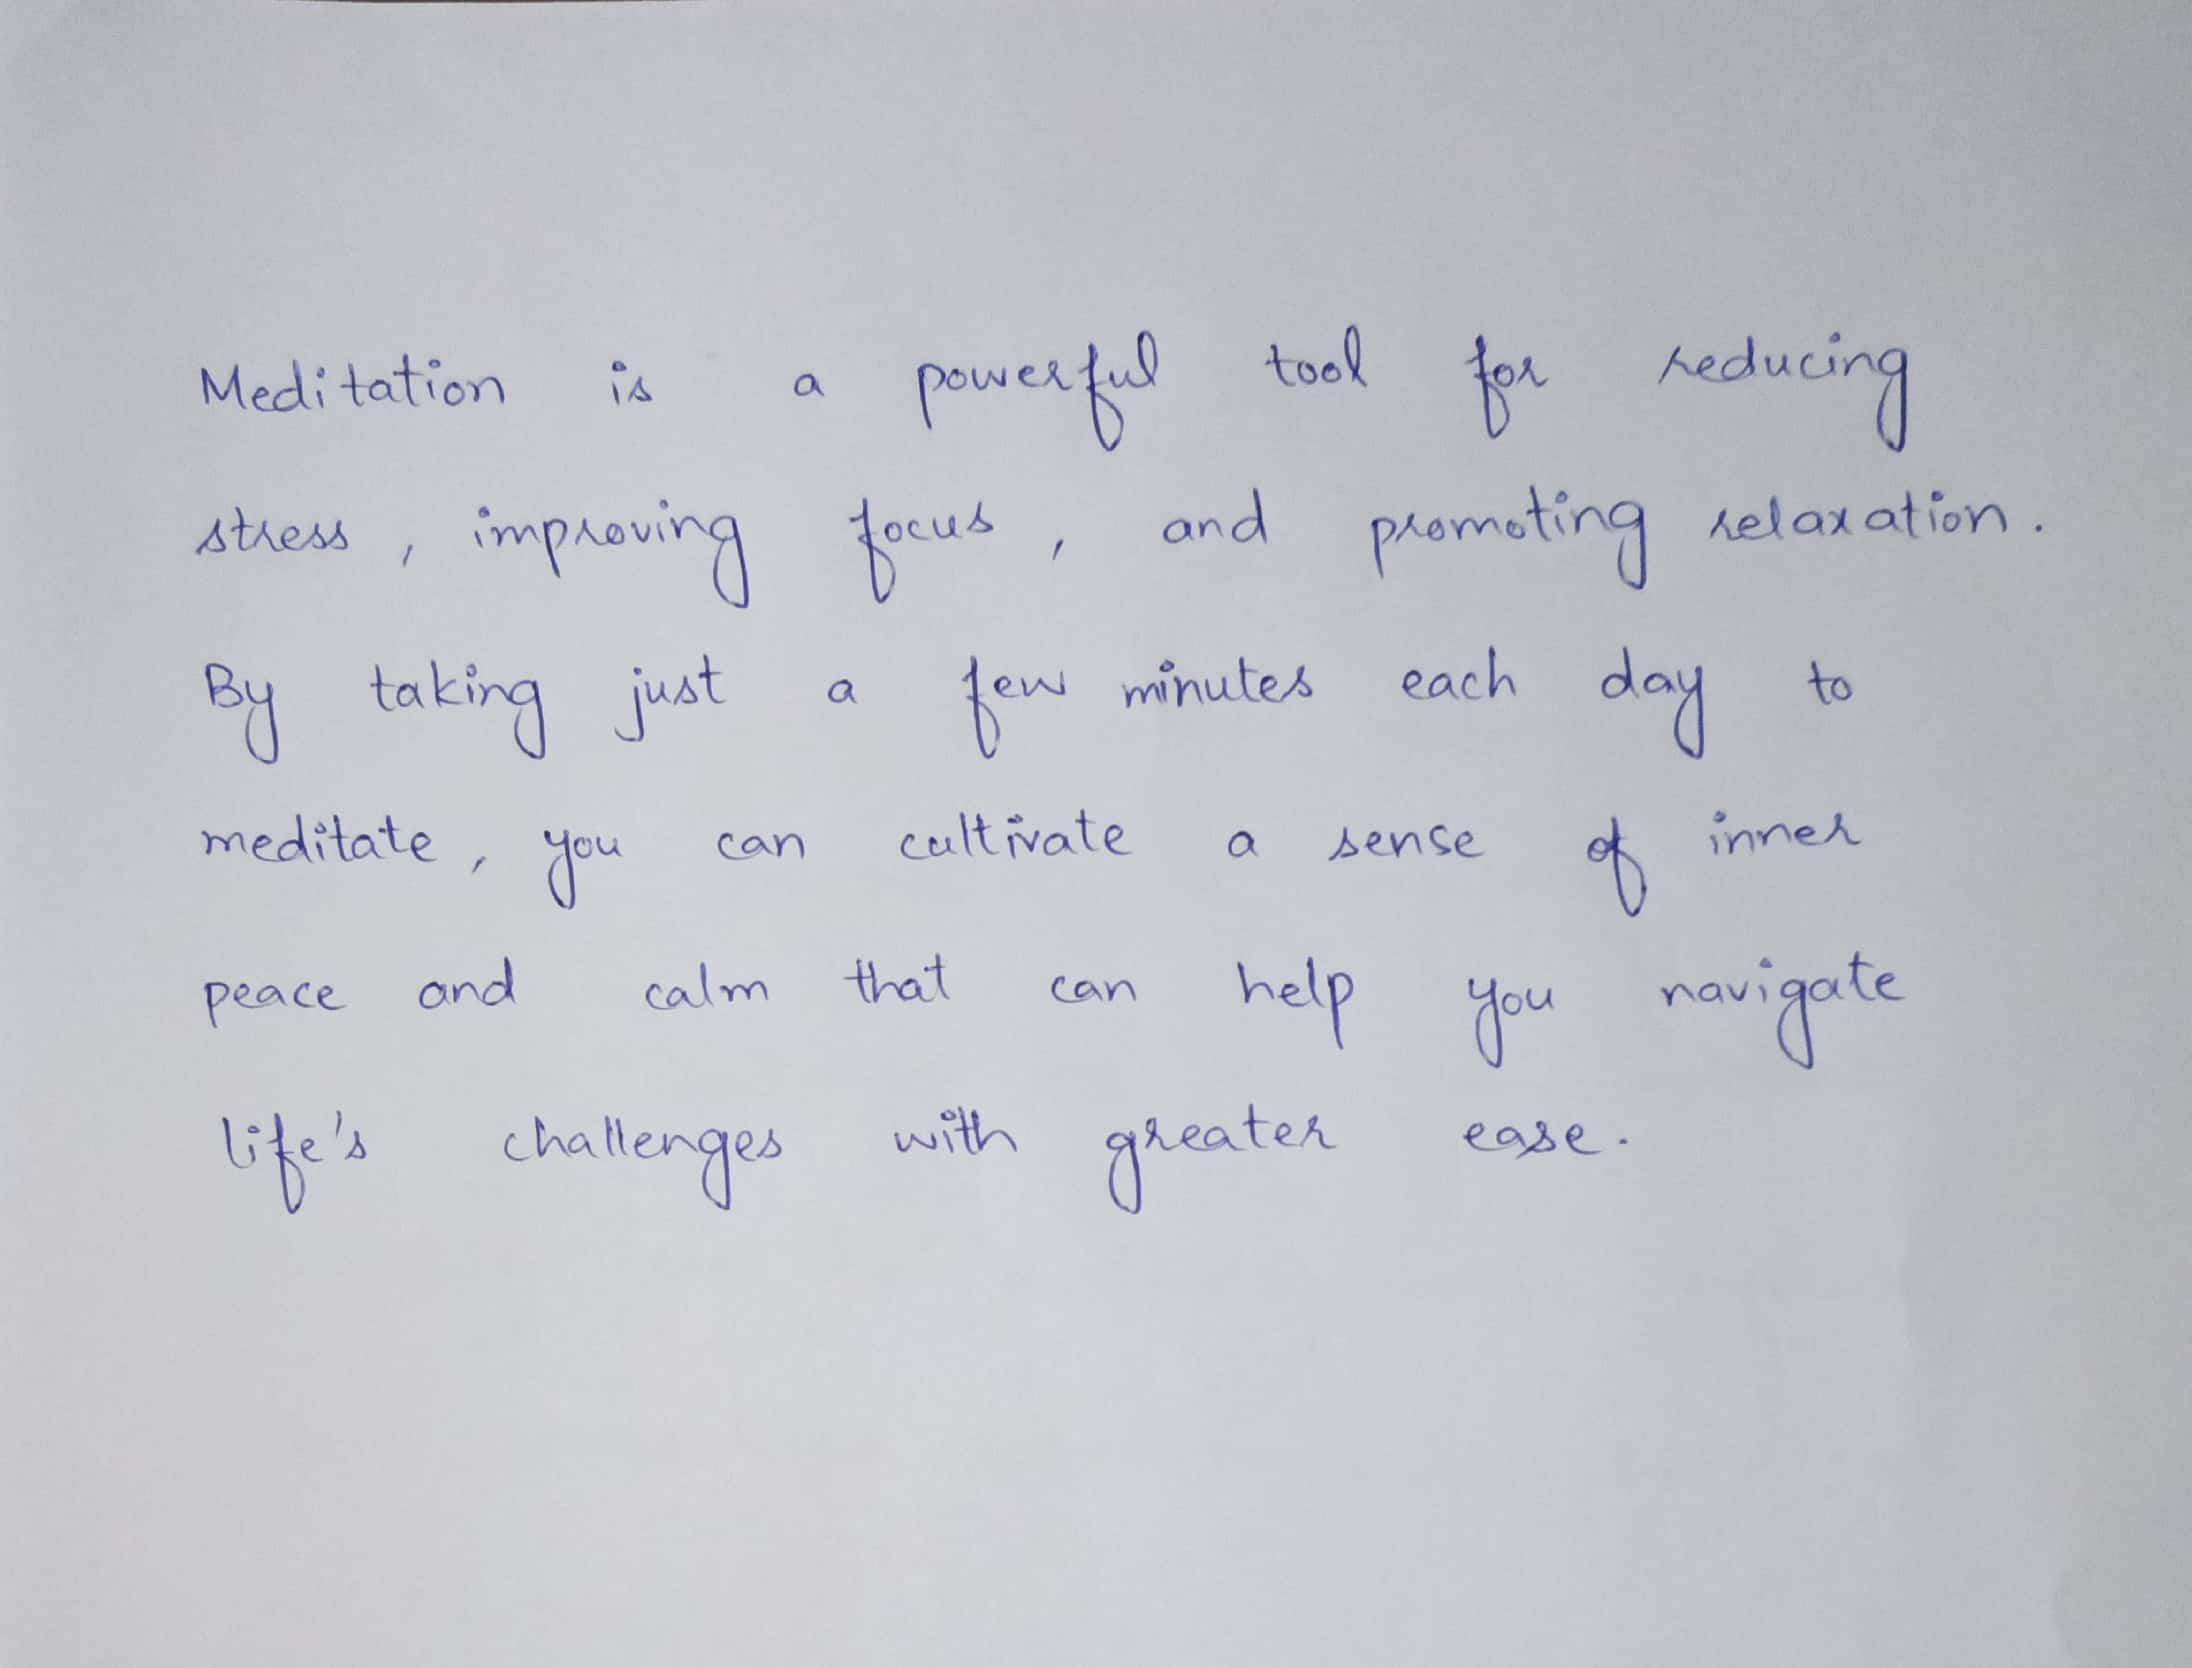 Meditation is a powerful tool for reducing
stress, improving focus, and promoting relaxation.
By taking just a few minutes each day to
meditate, you can cultivate a sense of inner
peace and calm that can help you navigate
life's challenges with greater ease.